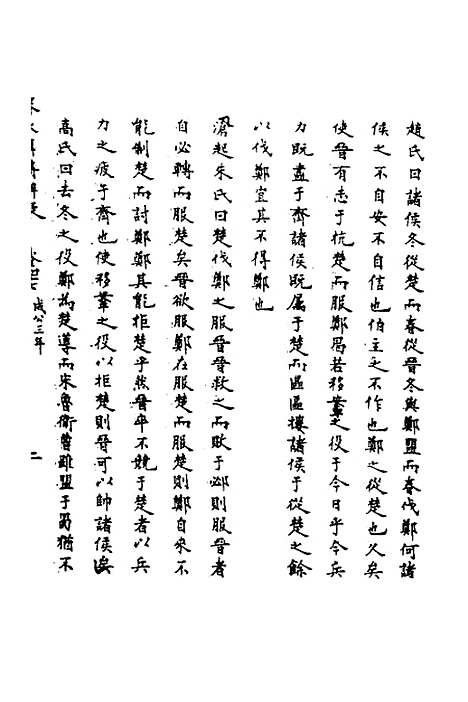 趙氏曰諸侯冬從楚而春從晉冬與鄭盟而春伐鄭何諸
侯之不自安不自信也伯主之不作也鄭之從楚也久矣
使晉有志于抗楚而服鄭曷若移鞌之役于今日乎今兵
力既盡于齊諸侯既属于楚而區區摟諸侯于從楚之餘
以伐鄭宜其不得鄭也
滄起朱氏曰楚伐鄭之服晉晉救之而敗于邲則服晉者
自必轉而服楚矣晉欲服鄭在服楚而服楚則鄭自來不
能制楚而討鄭鄭其能拒楚乎然晉卒不競于楚者以兵
力之疲于齊也使移鞌之役以拒楚則晉可以帥諸侯矣
高氏曰去冬之役鄭為楚導而宋魯衛曹雖盟于蜀猶不
成公三年
二